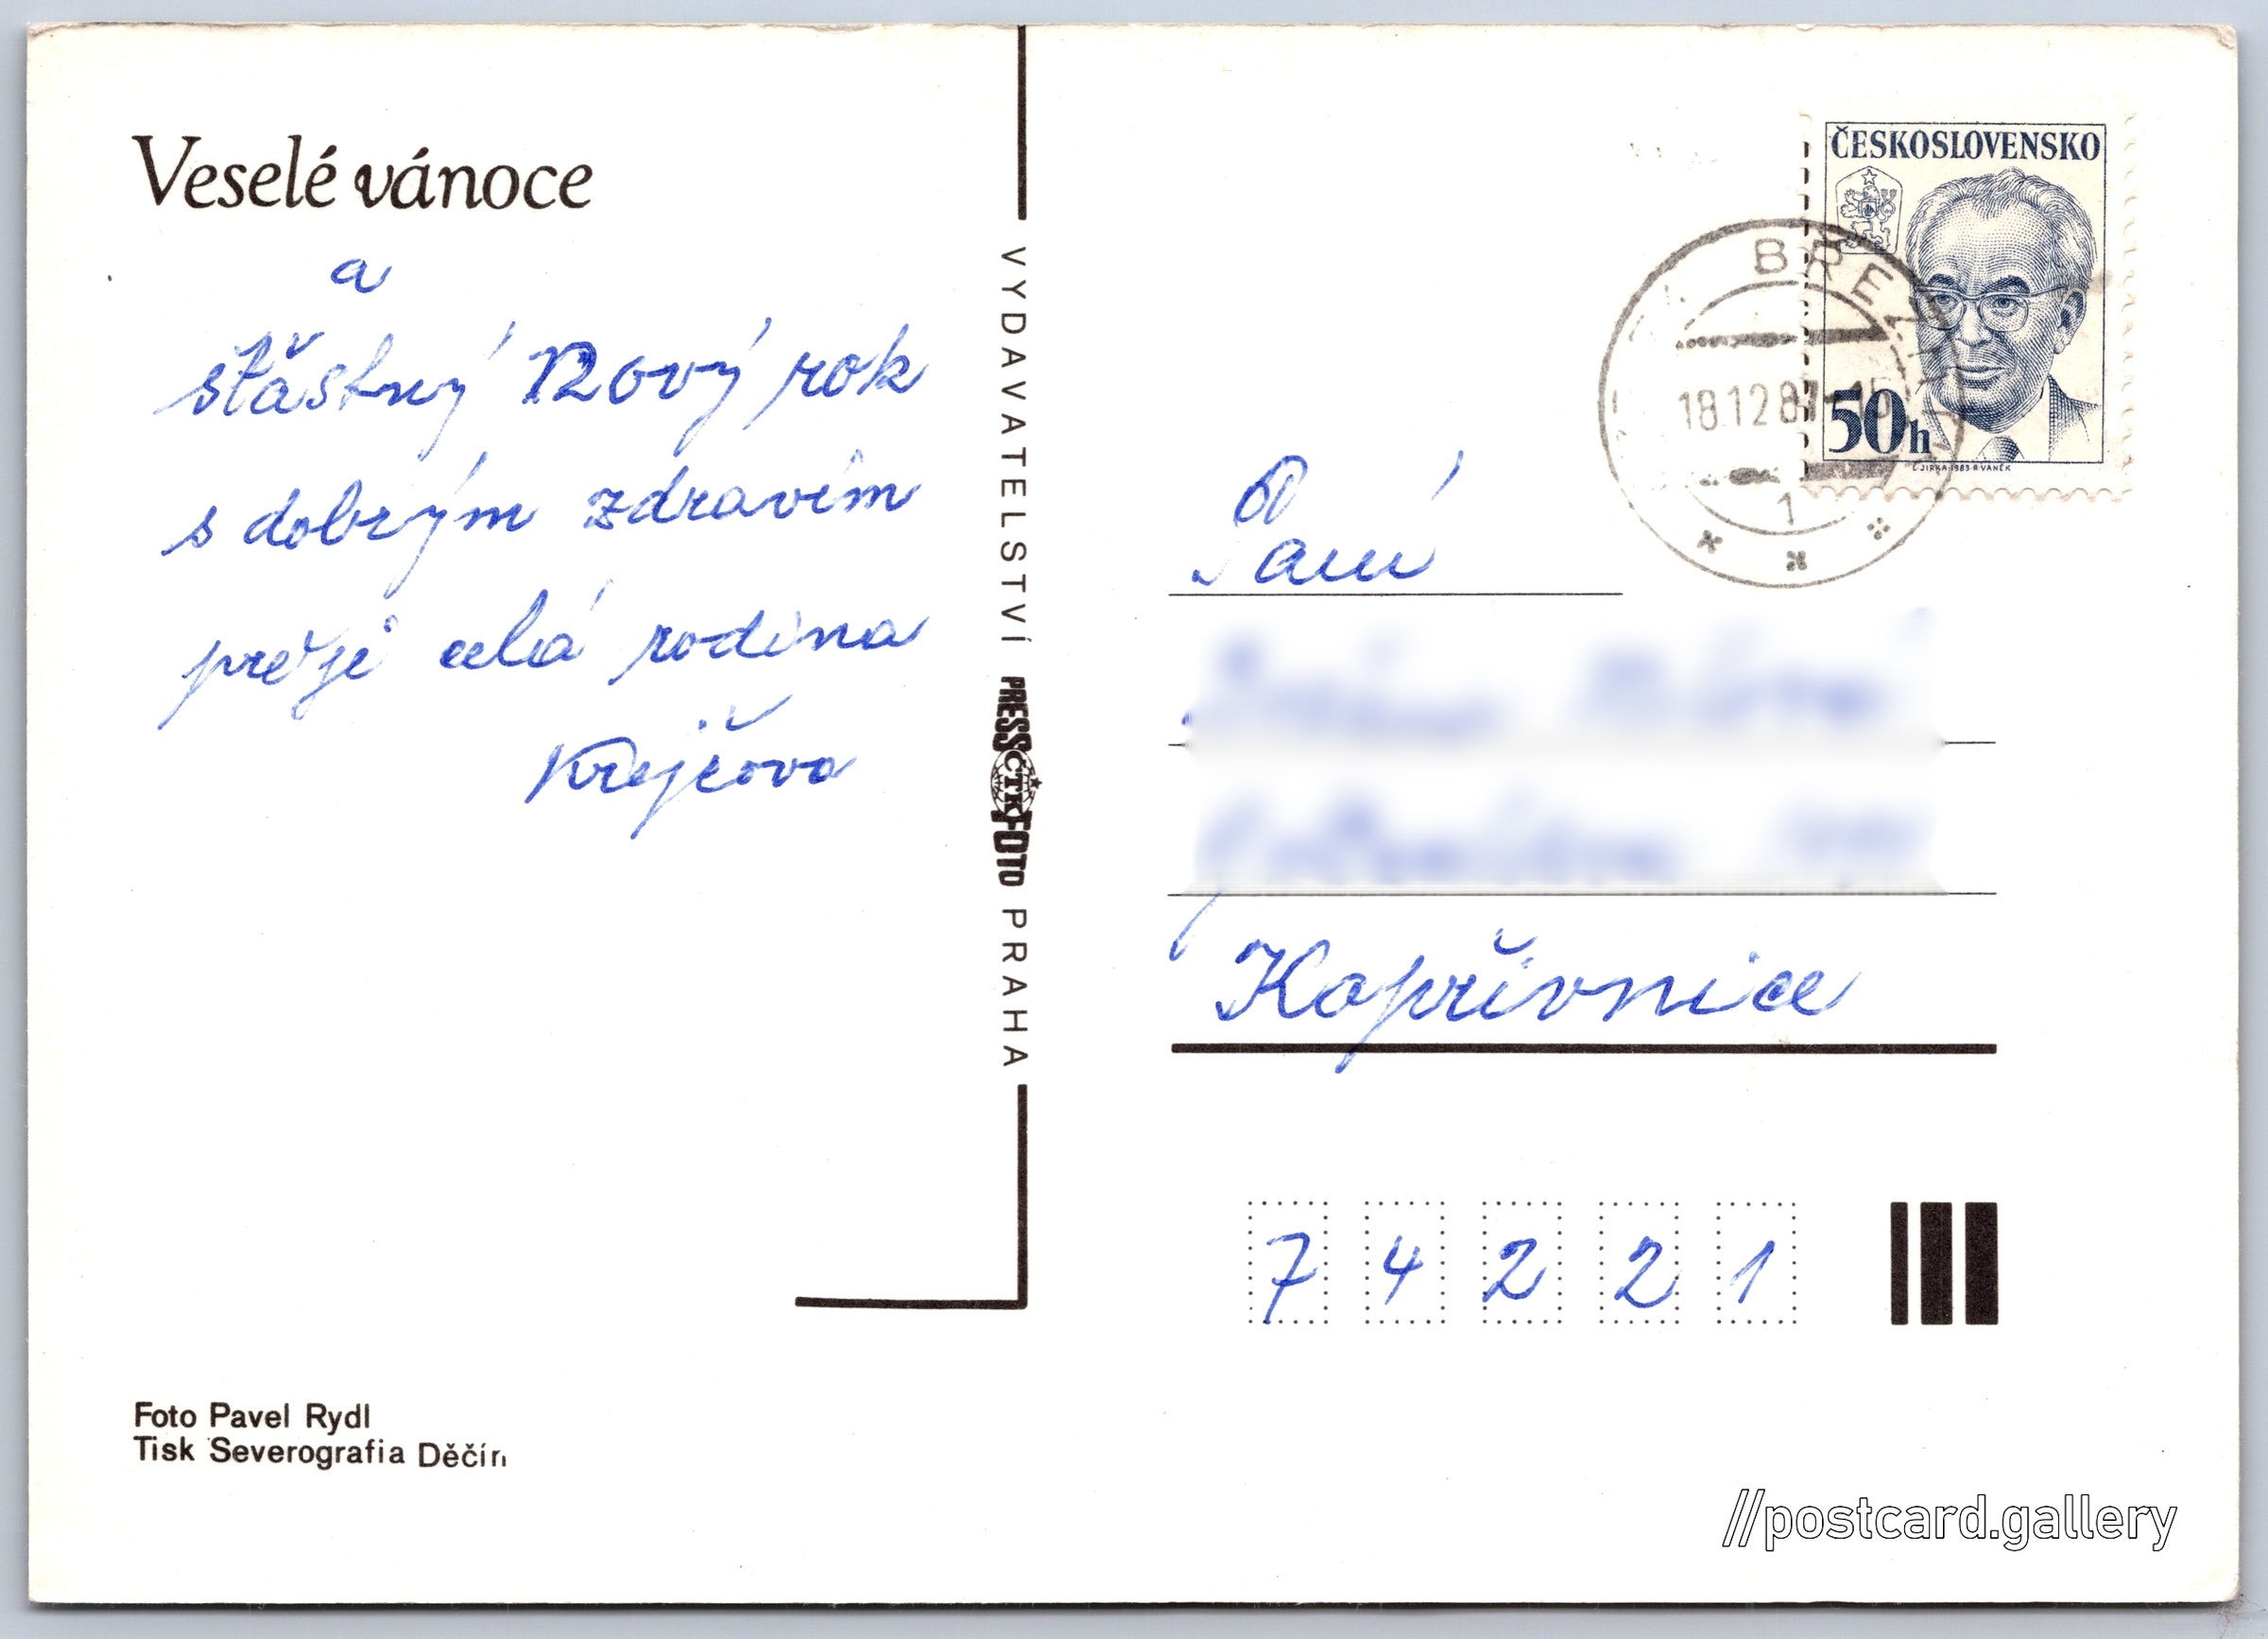 Veselé vánoce
a
šťastný Nový rok
s dobrým zdravím
přeje celá rodina
Krejčova
VYDAVATELSTVÍ PRESSČTKFOTO PRAHA
Foto Pavel Rydl
Tisk Severografia Děčín
ČESKOSLOVENSKO
50h
L.JIRKA-1983-R.VANĚK
18.12.87-15
1
Paní
Kopřivnice
7 4 2 2 1
//postcard.gallery